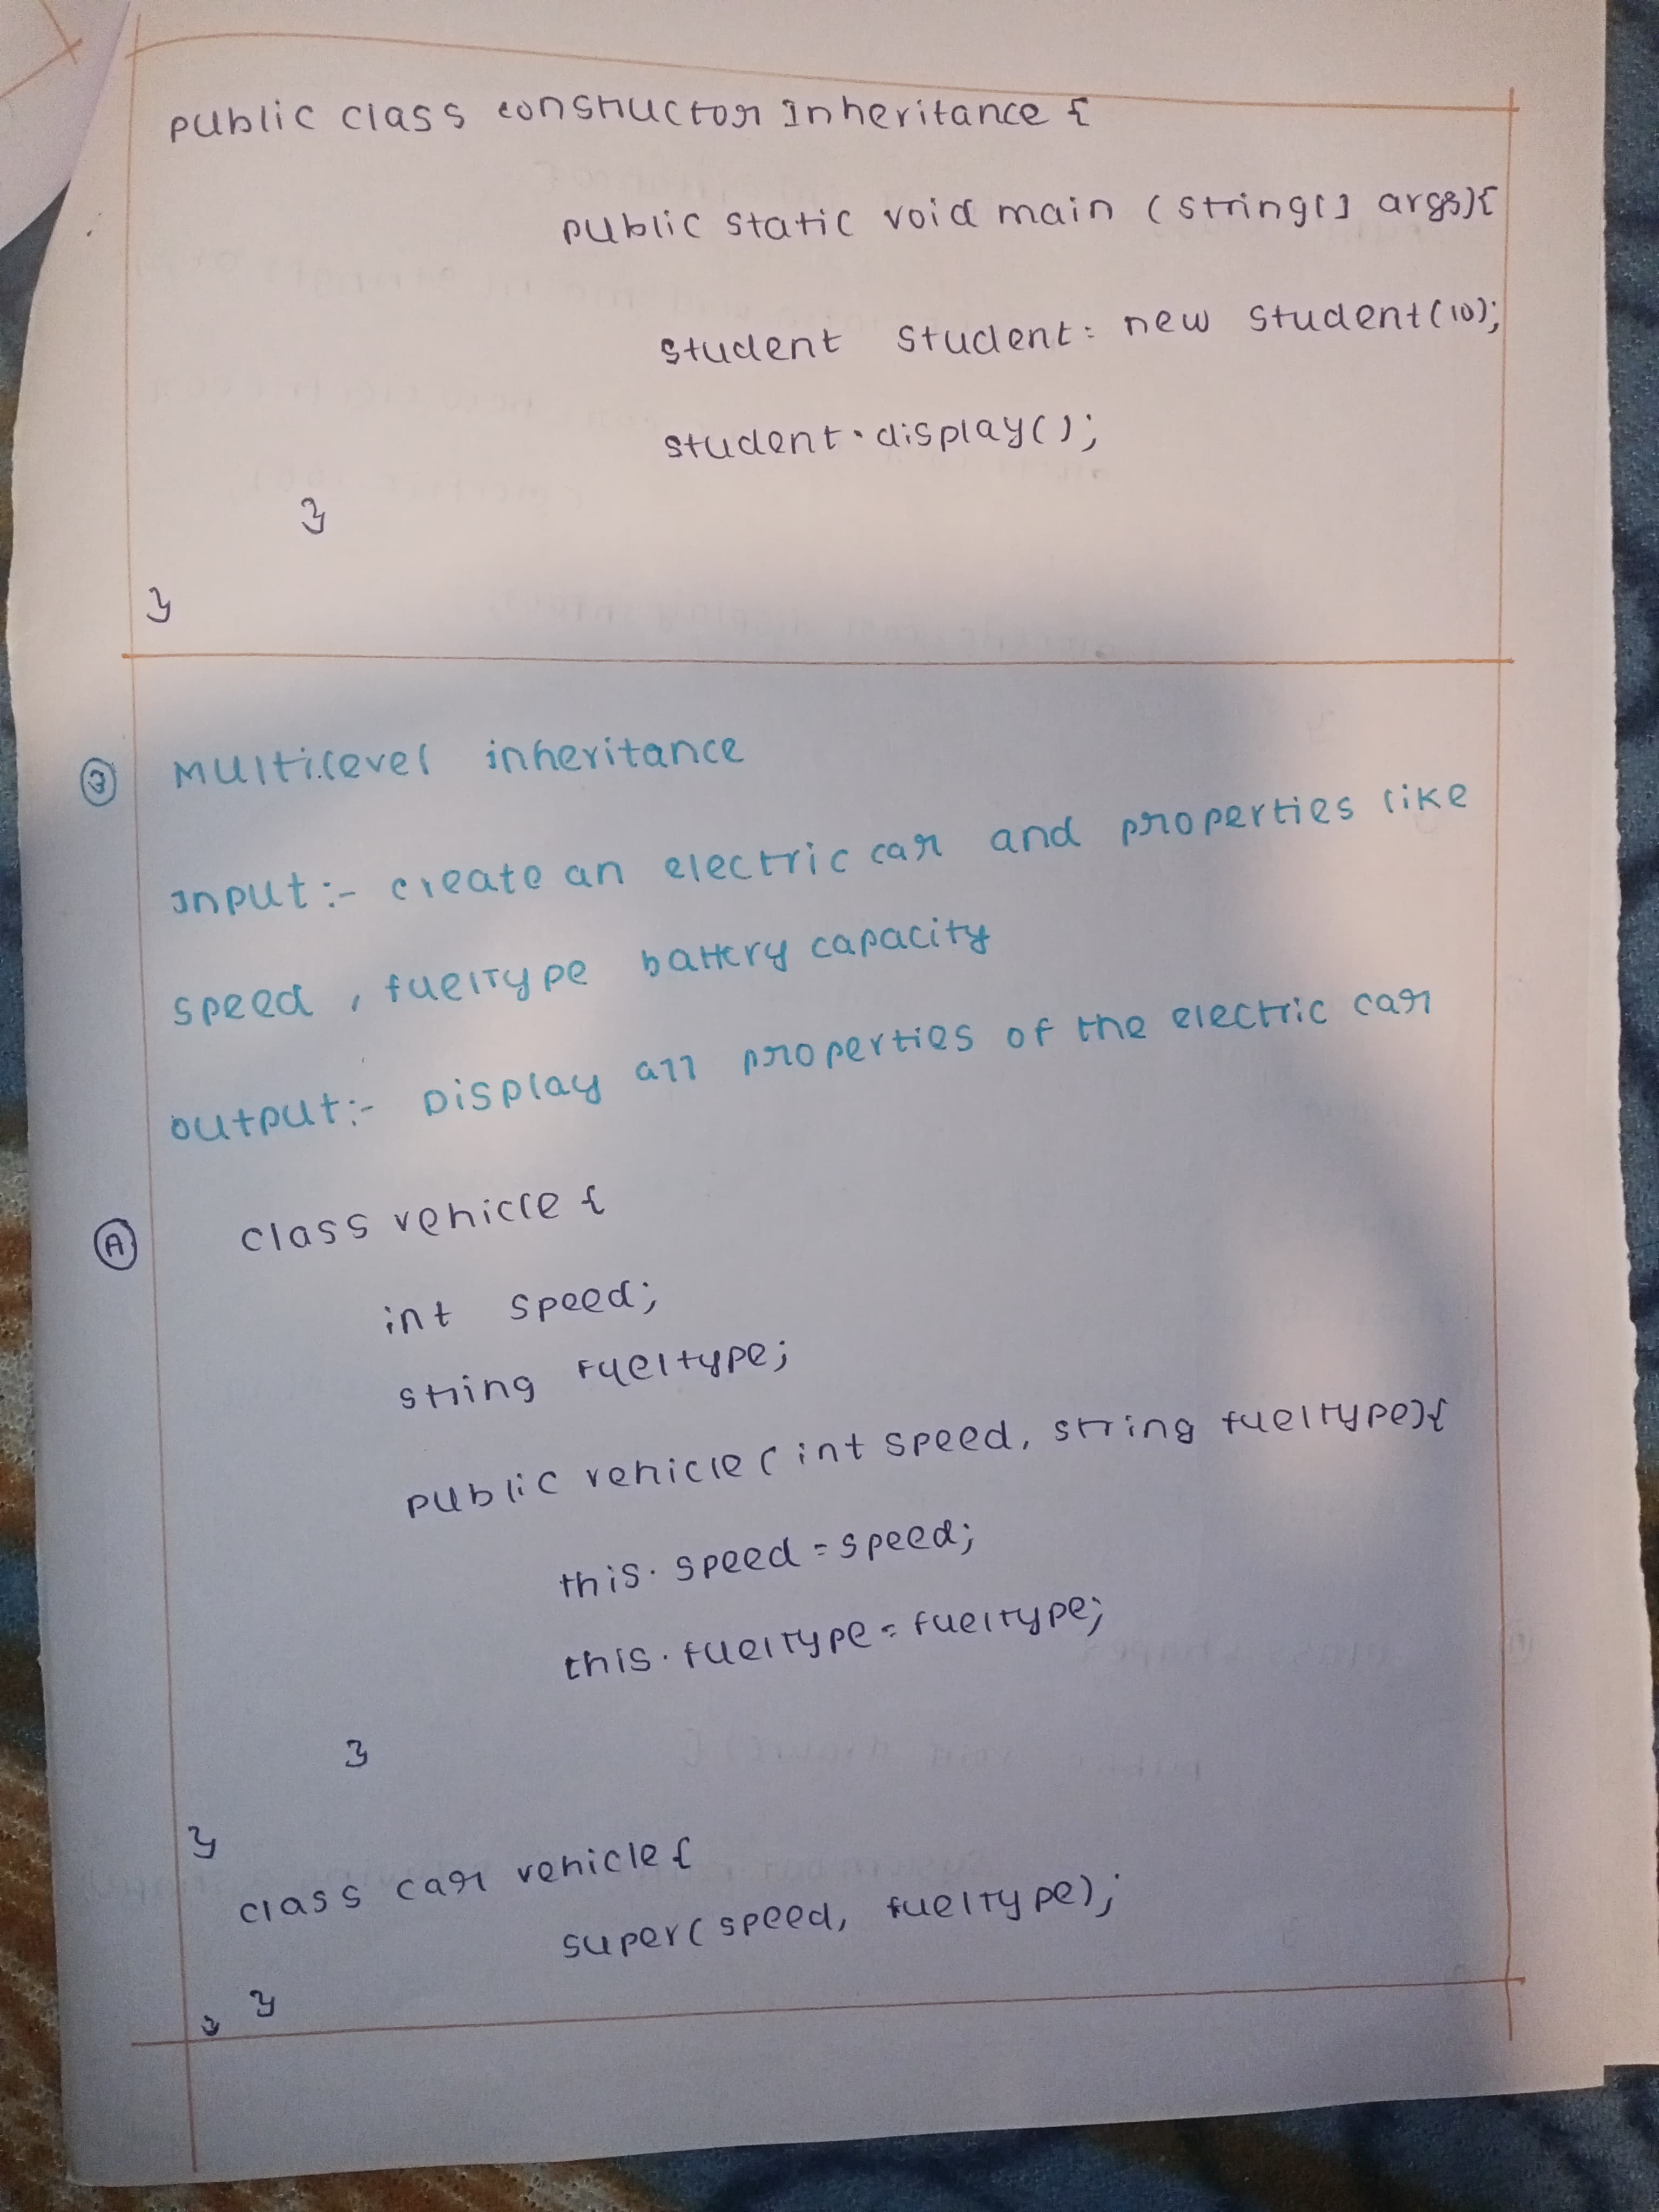 public class constructor Inheritance {
public static void main (string[] args){
student student = new student(10);
student.display();
}
}
③ Multilevel inheritance
Input:- create an electric car and properties like
speed, fueltype battery capacity
output:- Display all properties of the electric car
Ⓐ class vehicle {
int speed;
string fueltype;
public vehicle (int speed, string fueltype){
this.speed = speed;
this.fueltype = fueltype;
}
}
class car vehicle {
super(speed, fueltype);
}
}